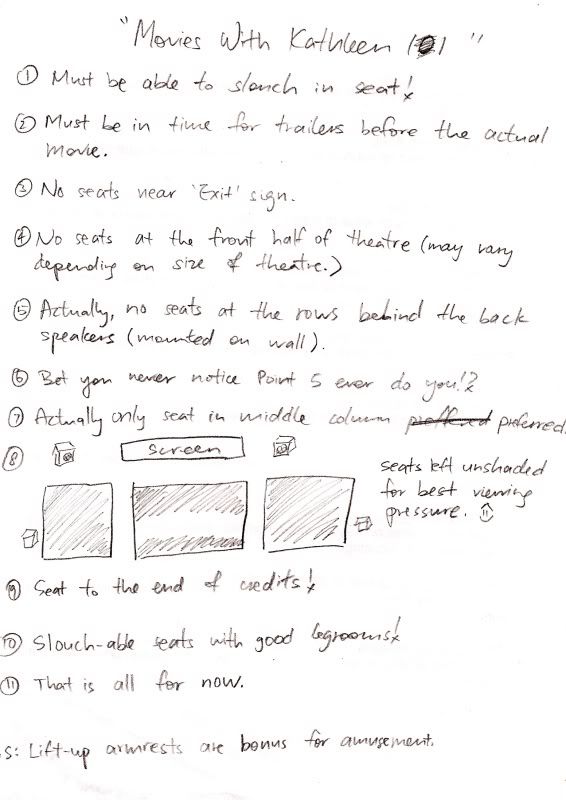 "Movies With Kathleen 101"
① Must be able to slouch in seat!
② Must be in time for trailers before the actual
movie.
③ No seats near 'Exit' sign.
④ No seats at the front half of theatre (may vary
depending on size of theatre.)
⑤ Actually, no seats at the rows behind the back
speakers (mounted on wall).
⑥ Bet you never notice Point 5 ever do you!?
⑦ Actually only seat in middle column preffered preferred.
⑧ screen
seats left unshaded
for best viewing
pressure.
⑨ Seat to the end of credits!
⑩ Slouch-able seats with good legrooms!
⑪ That is all for now.
.S: Lift-up armrests are bonus for amusement.